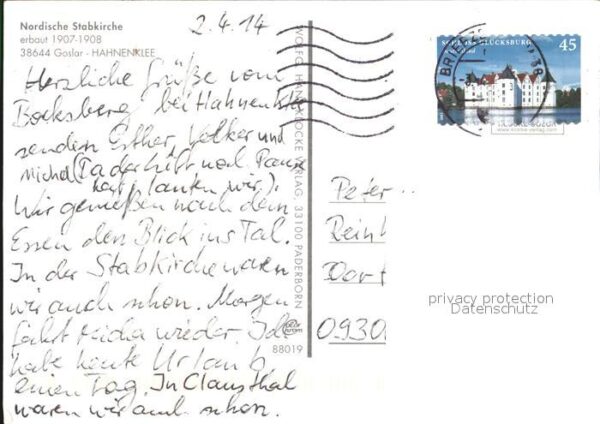 Nordische Stabkirche
erbaut 1907-1908
38644 Goslar - HAHNENKLEE
2.4.14
Herzliche Grüße vom
Bocksberg bei Hahnenklee
senden Esther, Volker und
Michel
wir).
Wir genießen nach dem
Essen den Blick ins Tal.
In der Stabkirche waren
wir auch schon. Morgen
fährt wieder. Ich
habe heute Urlaub
einen Tag. In Clausthal
waren wir auch schon.
VERLAG, 33100 PADERBORN
88019
SCHLOSS GLÜCKSBURG
45
BRIEF
38
Peter
Reinh
Dort
0930
privacy protection
Datenschutz